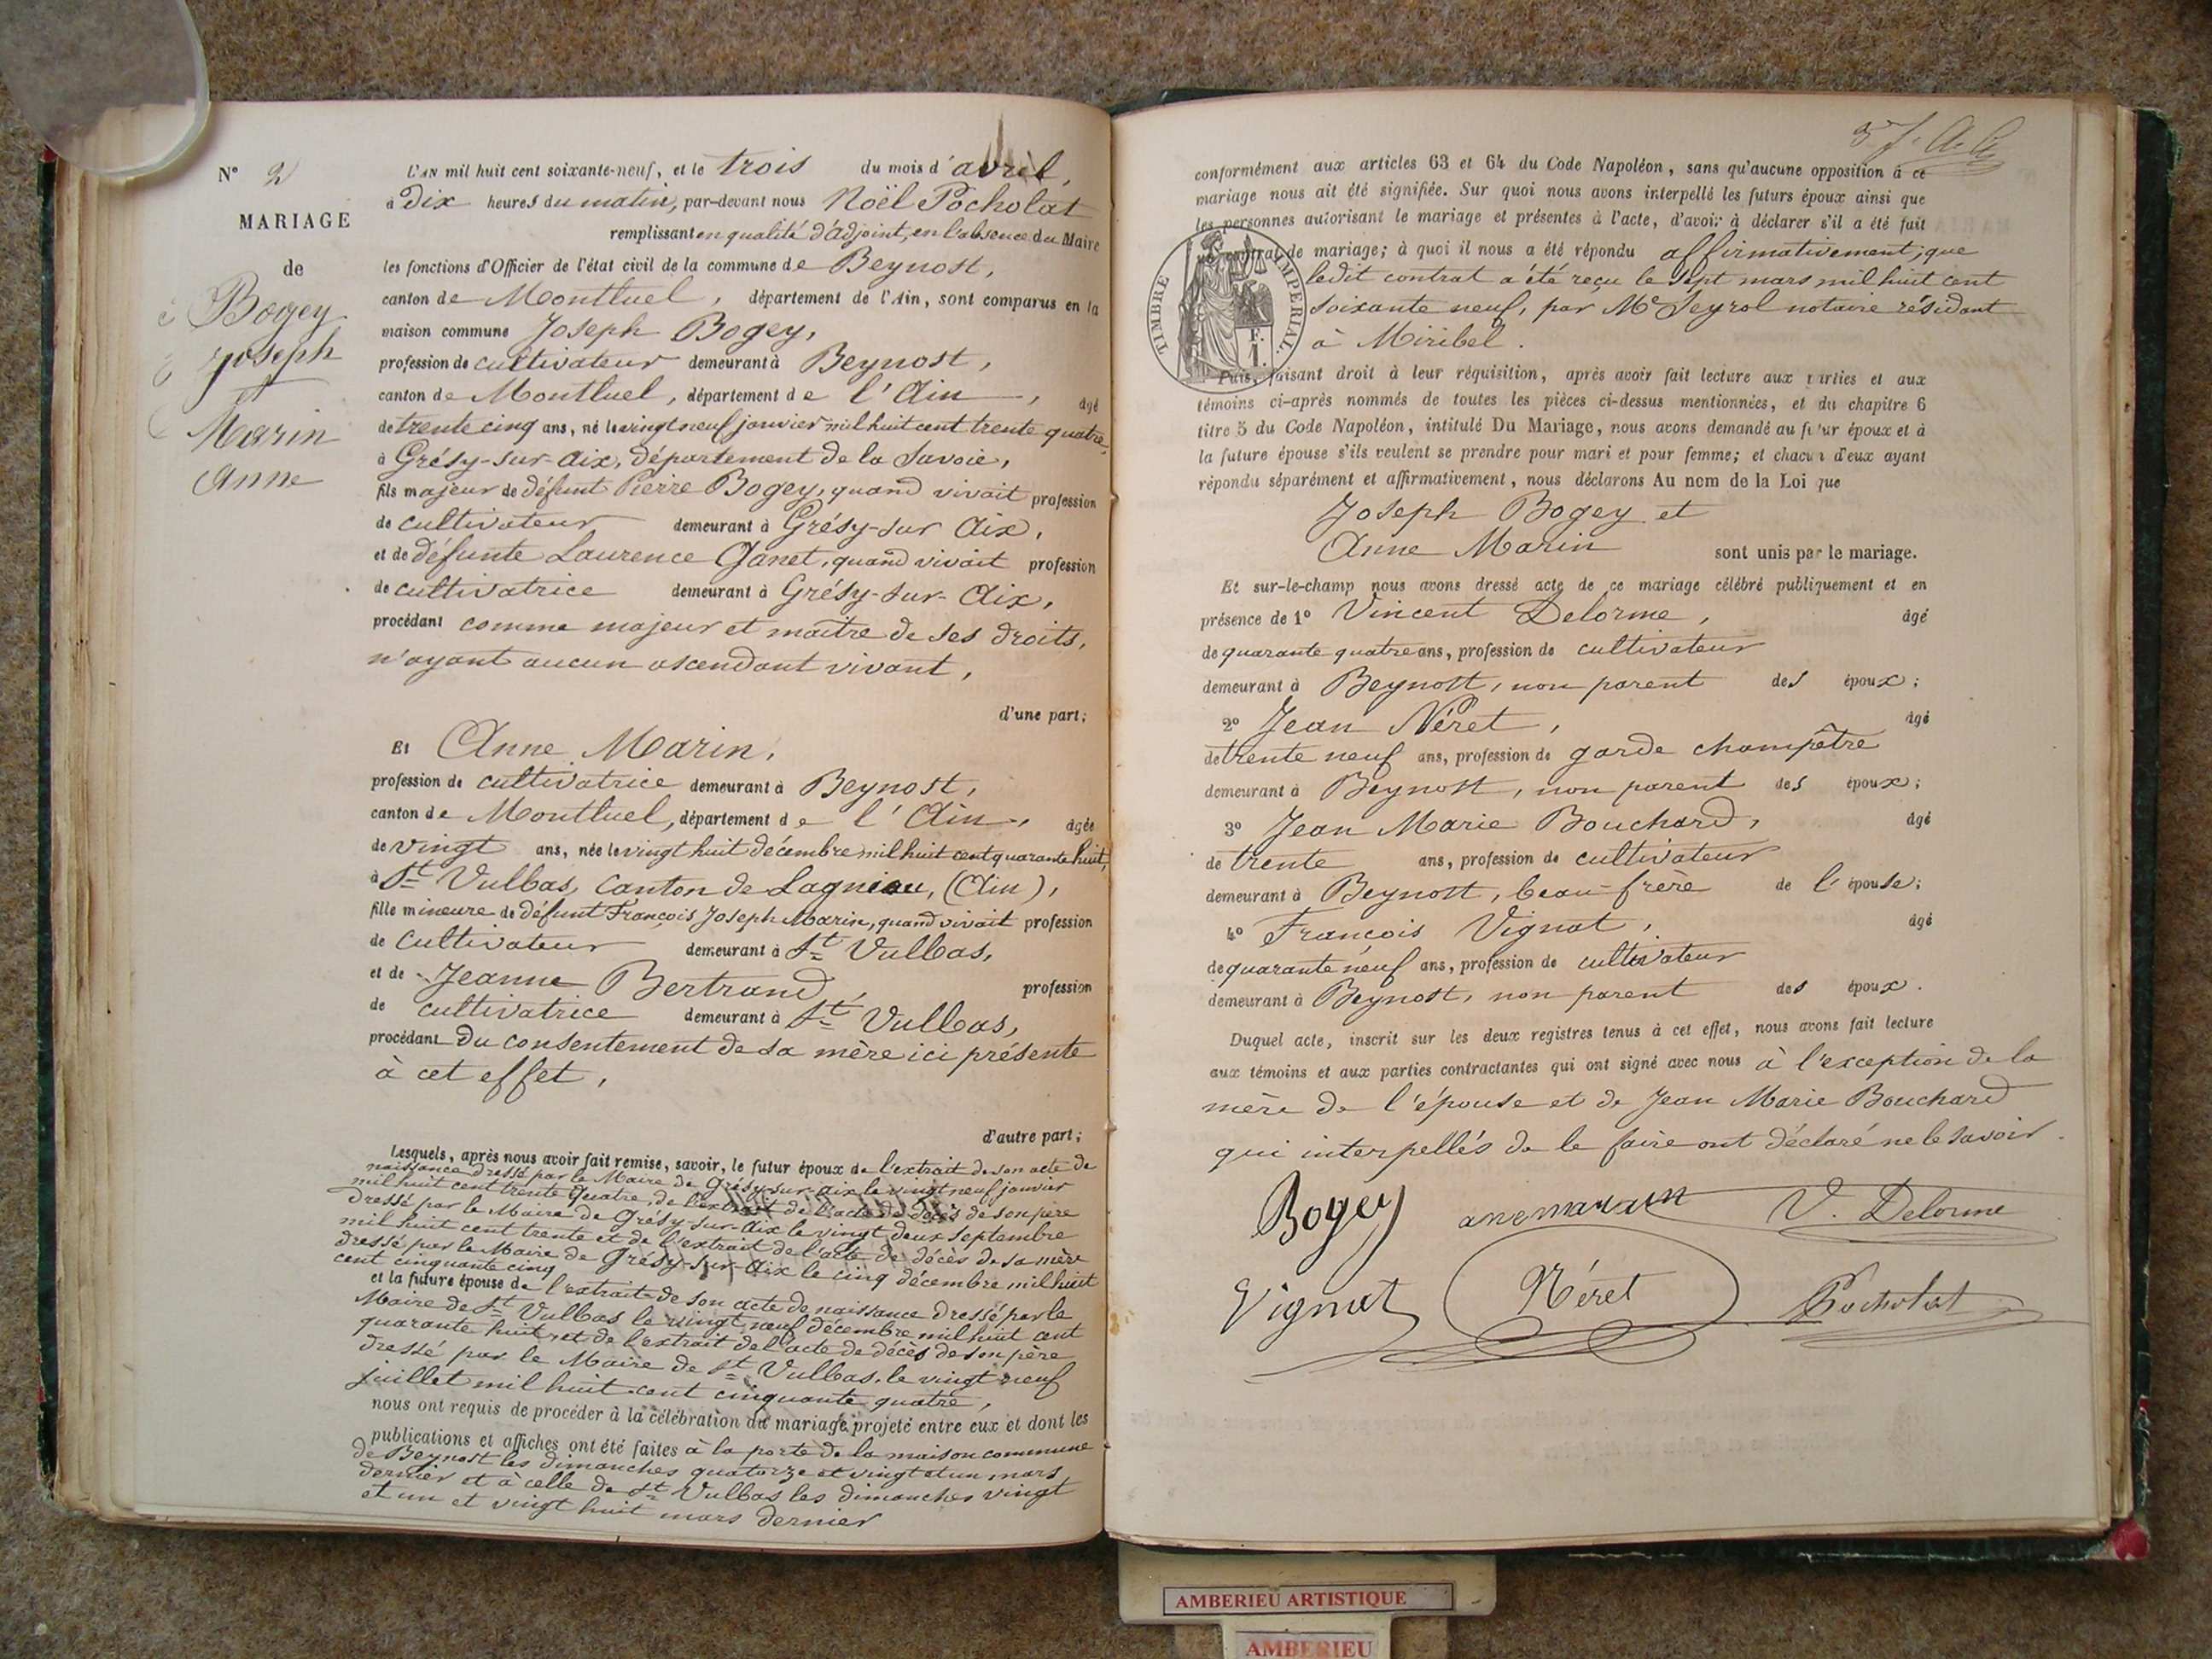 N° 2
MARIAGE
de
Bogey
Joseph
et
Marin
Anne
L'AN mil huit cent soixante-neuf, et le trois du mois d'avril,
à dix heures du matin, par-devant nous Noël Pocholat
remplissant en qualité d'adjoint, en l'absence du Maire
les fonctions d'Officier de l'état civil de la commune de Beynost,
canton de Montluel, département de l'Ain, sont comparus en la
maison commune Joseph Bogey,
profession de cultivateur demeurant à Beynost,
canton de Montluel, département de l'Ain, âgé
de trente cinq ans, né le vingt neuf janvier mil huit cent trente quatre,
à Grésy-sur-Aix, département de la Savoie,
fils majeur de défunt Pierre Bogey, quand vivait profession
de cultivateur demeurant à Grésy-sur Aix,
et de défunte Laurence Ganet, quand vivait profession
de cultivatrice demeurant à Grésy-sur-Aix,
procédant comme majeur et maître de ses droits,
n'ayant aucun ascendant vivant,
d'une part;
Et Anne Marin,
profession de cultivatrice demeurant à Beynost,
canton de Montluel, département de l'Ain, âgée
de vingt ans, née le vingt huit décembre mil huit cent quarante huit,
à St Vulbas, canton de Lagnieu, (Ain),
fille mineure de défunt François Joseph Marin, quand vivait profession
de cultivateur demeurant à St Vulbas,
et de Jeanne Bertrand, profession
de cultivatrice demeurant à St Vulbas,
procédant du consentement de sa mère ici présente
à cet effet,
d'autre part;
Lesquels, après nous avoir fait remise, savoir, le futur époux de l'extrait de son acte de
naissance dressé par le Maire de Grésy-sur-Aix le vingt neuf janvier
mil huit cent trente quatre, de l'extrait de l'acte de décès de son père
dressé par le Maire de Grésy-sur-Aix le vingt deux septembre
mil huit cent trente et de l'extrait de l'acte de décès de sa mère
dressé par le Maire de Grésy-sur-Aix le cinq décembre mil huit
cent cinquante cinq
et la future épouse de l'extrait de son acte de naissance dressé par le
Maire de St Vulbas le vingt neuf décembre mil huit cent
quarante huit, et de l'extrait de l'acte de décès de son père
dressé par le Maire de St Vulbas, le vingt neuf
juillet mil huit cent cinquante quatre,
nous ont requis de procéder à la célébration du mariage projeté entre eux et dont les
publications et affiches ont été faites à la porte de la maison commune
de Beynost les dimanches quatorze et vingt et un mars
dernier et à celle de St Vulbas les dimanches vingt
et un et vingt huit mars dernier
conformément aux articles 63 et 64 du Code Napoléon, sans qu'aucune opposition à ce
mariage nous ait été signifiée. Sur quoi nous avons interpellé les futurs époux ainsi que
les personnes autorisant le mariage et présentes à l'acte, d'avoir à déclarer s'il a été fait
contrat de mariage; à quoi il nous a été répondu affirmativement, que
ledit contrat a été reçu le sept mars mil huit cent
soixante neuf, par Me Seyrol notaire résidant
à Miribel.
TIMBRE IMPERIAL.
Puis, faisant droit à leur réquisition, après avoir fait lecture aux parties et aux
témoins ci-après nommés de toutes les pièces ci-dessus mentionnées, et du chapitre 6
titre 5 du Code Napoléon, intitulé Du Mariage, nous avons demandé au futur époux et à
la future épouse s'ils veulent se prendre pour mari et pour femme; et chacun d'eux ayant
répondu séparément et affirmativement, nous déclarons Au nom de la Loi que
Joseph Bogey et
Anne Marin sont unis par le mariage.
Et sur-le-champ nous avons dressé acte de ce mariage célébré publiquement et en
présence de 1° Vincent Delorme, âgé
de quarante quatre ans, profession de cultivateur
demeurant à Beynost, non parent des époux;
2° Jean Néret, âgé
de trente neuf ans, profession de garde champêtre
demeurant à Beynost, non parent des époux;
3° Jean Marie Bouchard, âgé
de trente ans, profession de cultivateur
demeurant à Beynost, beau-frère de l'épouse;
4° François Vignat, âgé
de quarante neuf ans, profession de cultivateur
demeurant à Beynost, non parent des époux.
Duquel acte, inscrit sur les deux registres tenus à cet effet, nous avons fait lecture
aux témoins et aux parties contractantes qui ont signé avec nous à l'exception de la
mère de l'épouse et de Jean Marie Bouchard
qui interpellés de le faire ont déclaré ne le savoir.
Bogey anemarain V. Delorme
Vignat Néret Pocholat
AMBERIEU ARTISTIQUE
AMBERIEU